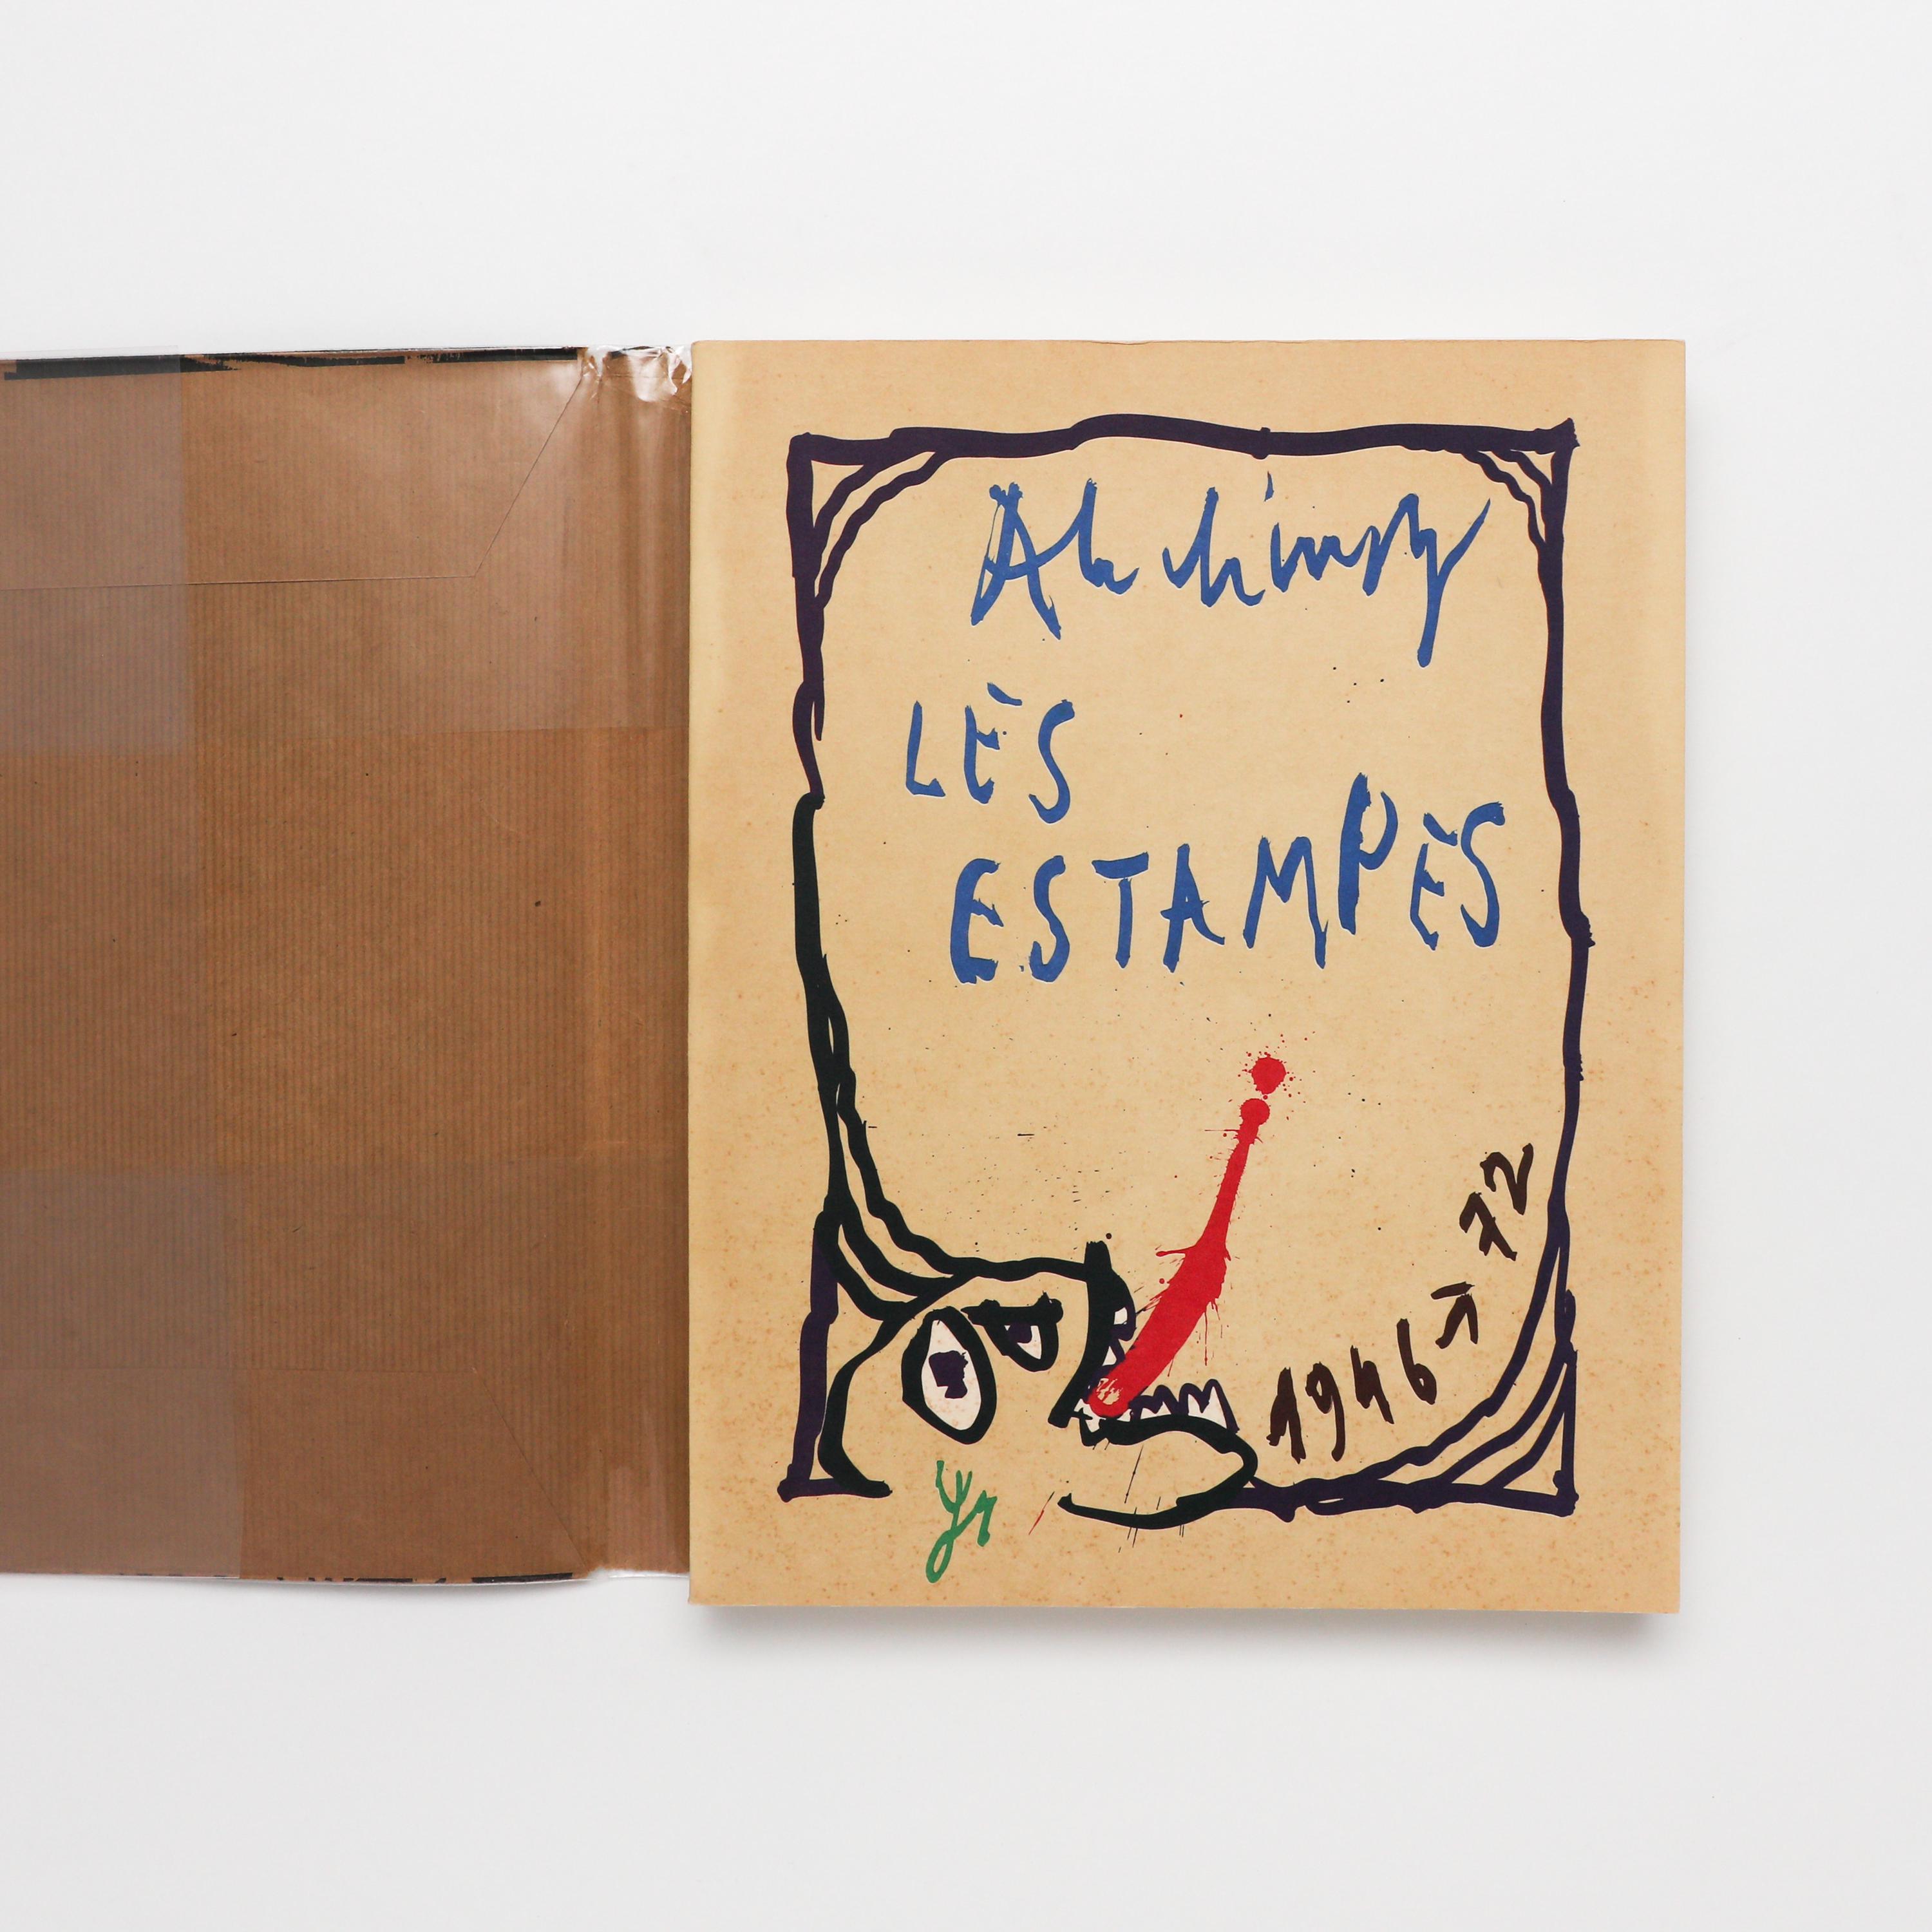 Alechinsky
LÈS
ESTAMPÈS
1946-72